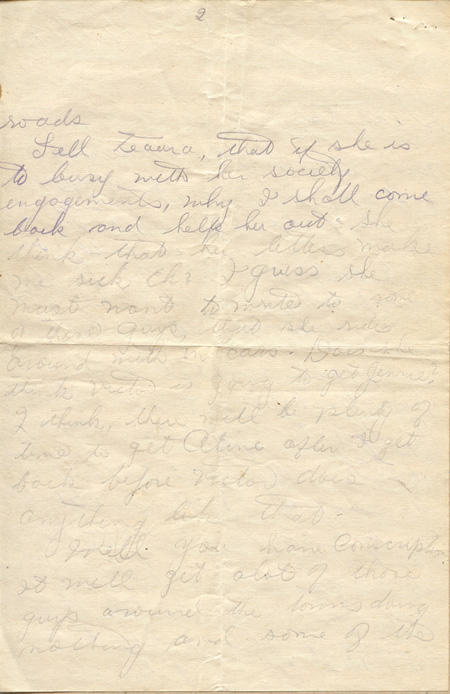 2
roads
Tell Leaura, that if she is
to busy with her society
engagements, why I shall come
back and help her out. She
think that her letters make
me sick Eh? I guess she
must want to write to some
of them guys, that she rides
around with in cars. Does she
think Victor is going to get Jennie?
I think, there will be plenty of
time to get Aline after I get
back before Victor does
anything like that.
Well you have Conscription
it will get alot of those
guys around the towns doing
nothing and some of the